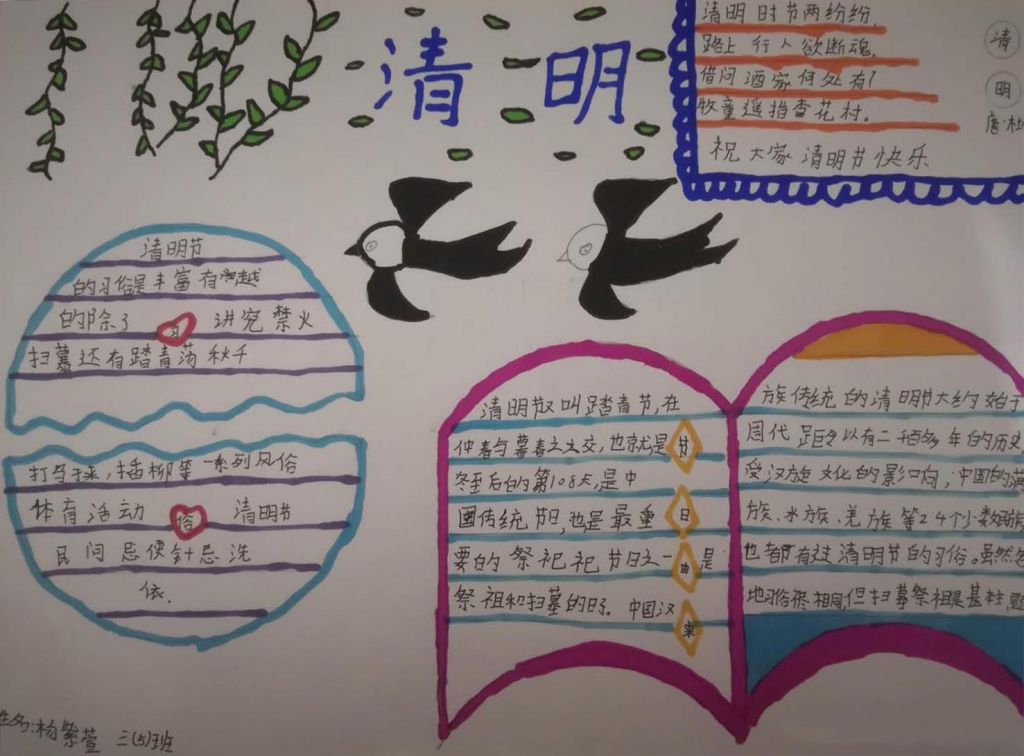 清明
清明时节雨纷纷,
路上行人欲断魂,
借问酒家何处有?
牧童遥指杏花村。
祝大家清明节快乐
清
明
唐·杜
清明节
的习俗是丰富有
的除了 讲究禁火
习
扫墓还有踏青荡秋千
打马于来,插柳等一系列风俗
体育活动 清明节
俗
民间忌使针忌洗
依.
清明节又叫踏青节,在
仲春与暮春之交,也就是
冬至后的第108天,是中
國传统节日,也是最重
要的祭祀祀节日之一 是
祭祖和扫墓的日子. 中国汉
节
日
由
来
族传统的清明节大约始于
周代 距今以有二千百多年的历史
受汉族文化的影口向,中国的满
族、水族、羌族等24个少数民族
也都有过清明节的习俗。虽然各
地习俗不相同,但扫墓祭祖是基本
姓名:杨紫萱 三(5)班